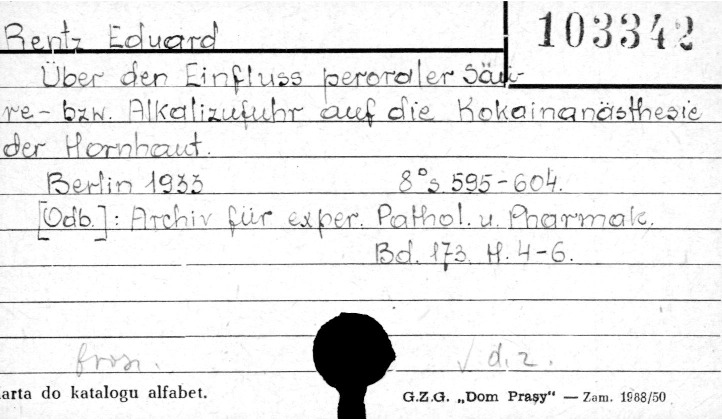 Rentz Eduard
103342
Über den Einfluss peroraler Säu-
re- bzw. Alkalizufuhr auf die Kokainanästhesie
der Hornhaut.
Berlin 1933 8° s. 595-604.
[Odb.]: Archiv für exper. Pathol. u. Pharmak.
Bd. 173. H. 4-6.
√ d. z.
arta do katalogu alfabet.
G.Z.G. „Dom Prasy“ — Zam. 1988/50